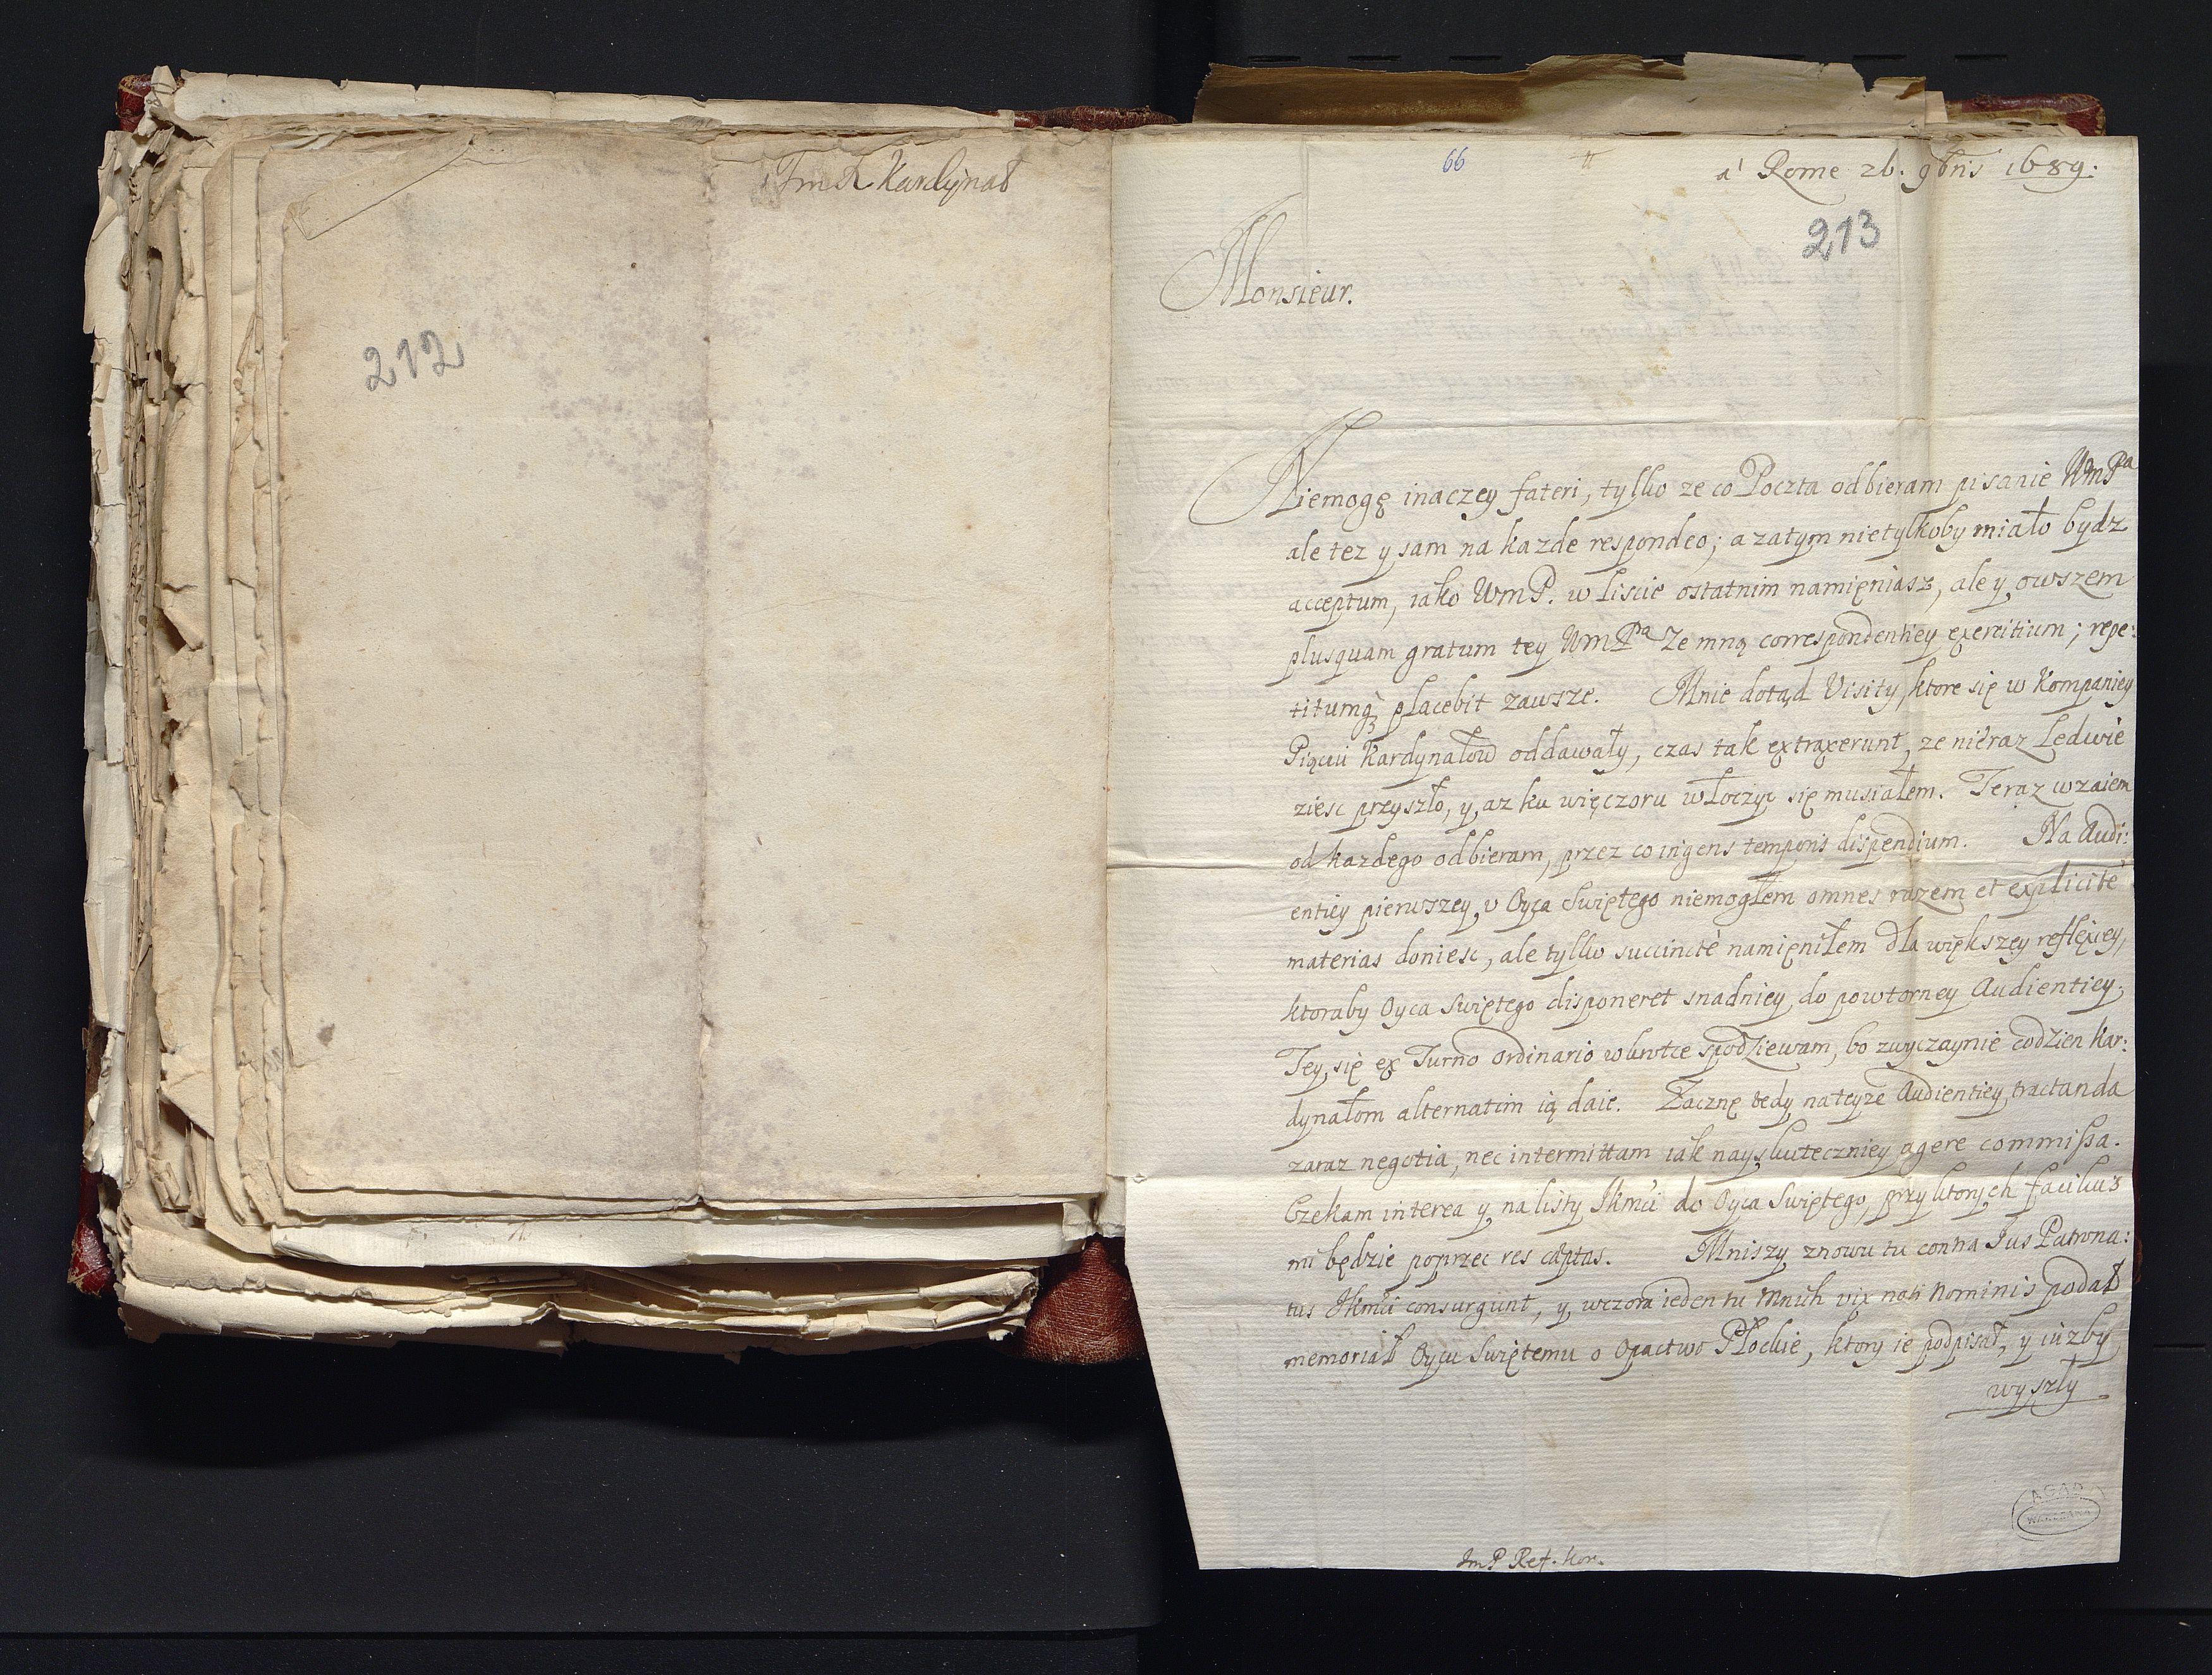 ImX Kardynał
212
66
a' Rome 26. 9bris 1689:
213
Monsieur.
Niemogę inaczey fateri, tylko ze co Poczta odbieram pisanie WmPa
ale tez y sam na kazde respondeo; a zatym nietylkoby miało bydz
acceptum, iako WmP. w liscie ostatnim namięniasz, ale y owszem
plusquam gratum tey WmPa ze mną correspondentiey exercitium; repe:
titumq; placebit zawsze. Mnie dotąd Visity, ktore się w Kompaniey
Pięciu Kardynałow oddawały, czas tak extraxerunt, ze nieraz Ledwie
ziesc przyszło, y az ku więczoru włoczyc się musiałem. Teraz wzaiem
od kazdego odbieram, przez co ingens temporis dispendium. Na Audi:
entiey pierwszey v Oyca Swiętego niemogłem omnes razem et explicité
materias doniesc, ale tylko succincté namięniłem dla większey reflexiey,
ktoraby Oyca Swiętego disponeret snadniey do powtorney Audientiey.
Tey się ex Turno ordinario wkrotce spodziewam, bo zwyczaynie codzien Kar:
dynałom alternatim ią daie. Zacznę tedy na teyze Audientiey tractanda
zaraz negotia, nec intermittam iak nayskuteczniey agere commissa.
Czekam interea y na listy Jkmci do Oyca Swiętego, przy ktorych facilius
mi będzie poprzec res captas. Mniszy znowu tu contra Jus Patrona:
tus Jkmci consurgunt, y wczora ieden tu Mnich vix noti Nominis podał
memoriał Oycu Swiętemu o Opactwo Płockie, ktory ie podpisał, y iuzby
wyszły
AGAD
WARSZAWA
JmP Ref. Kor.